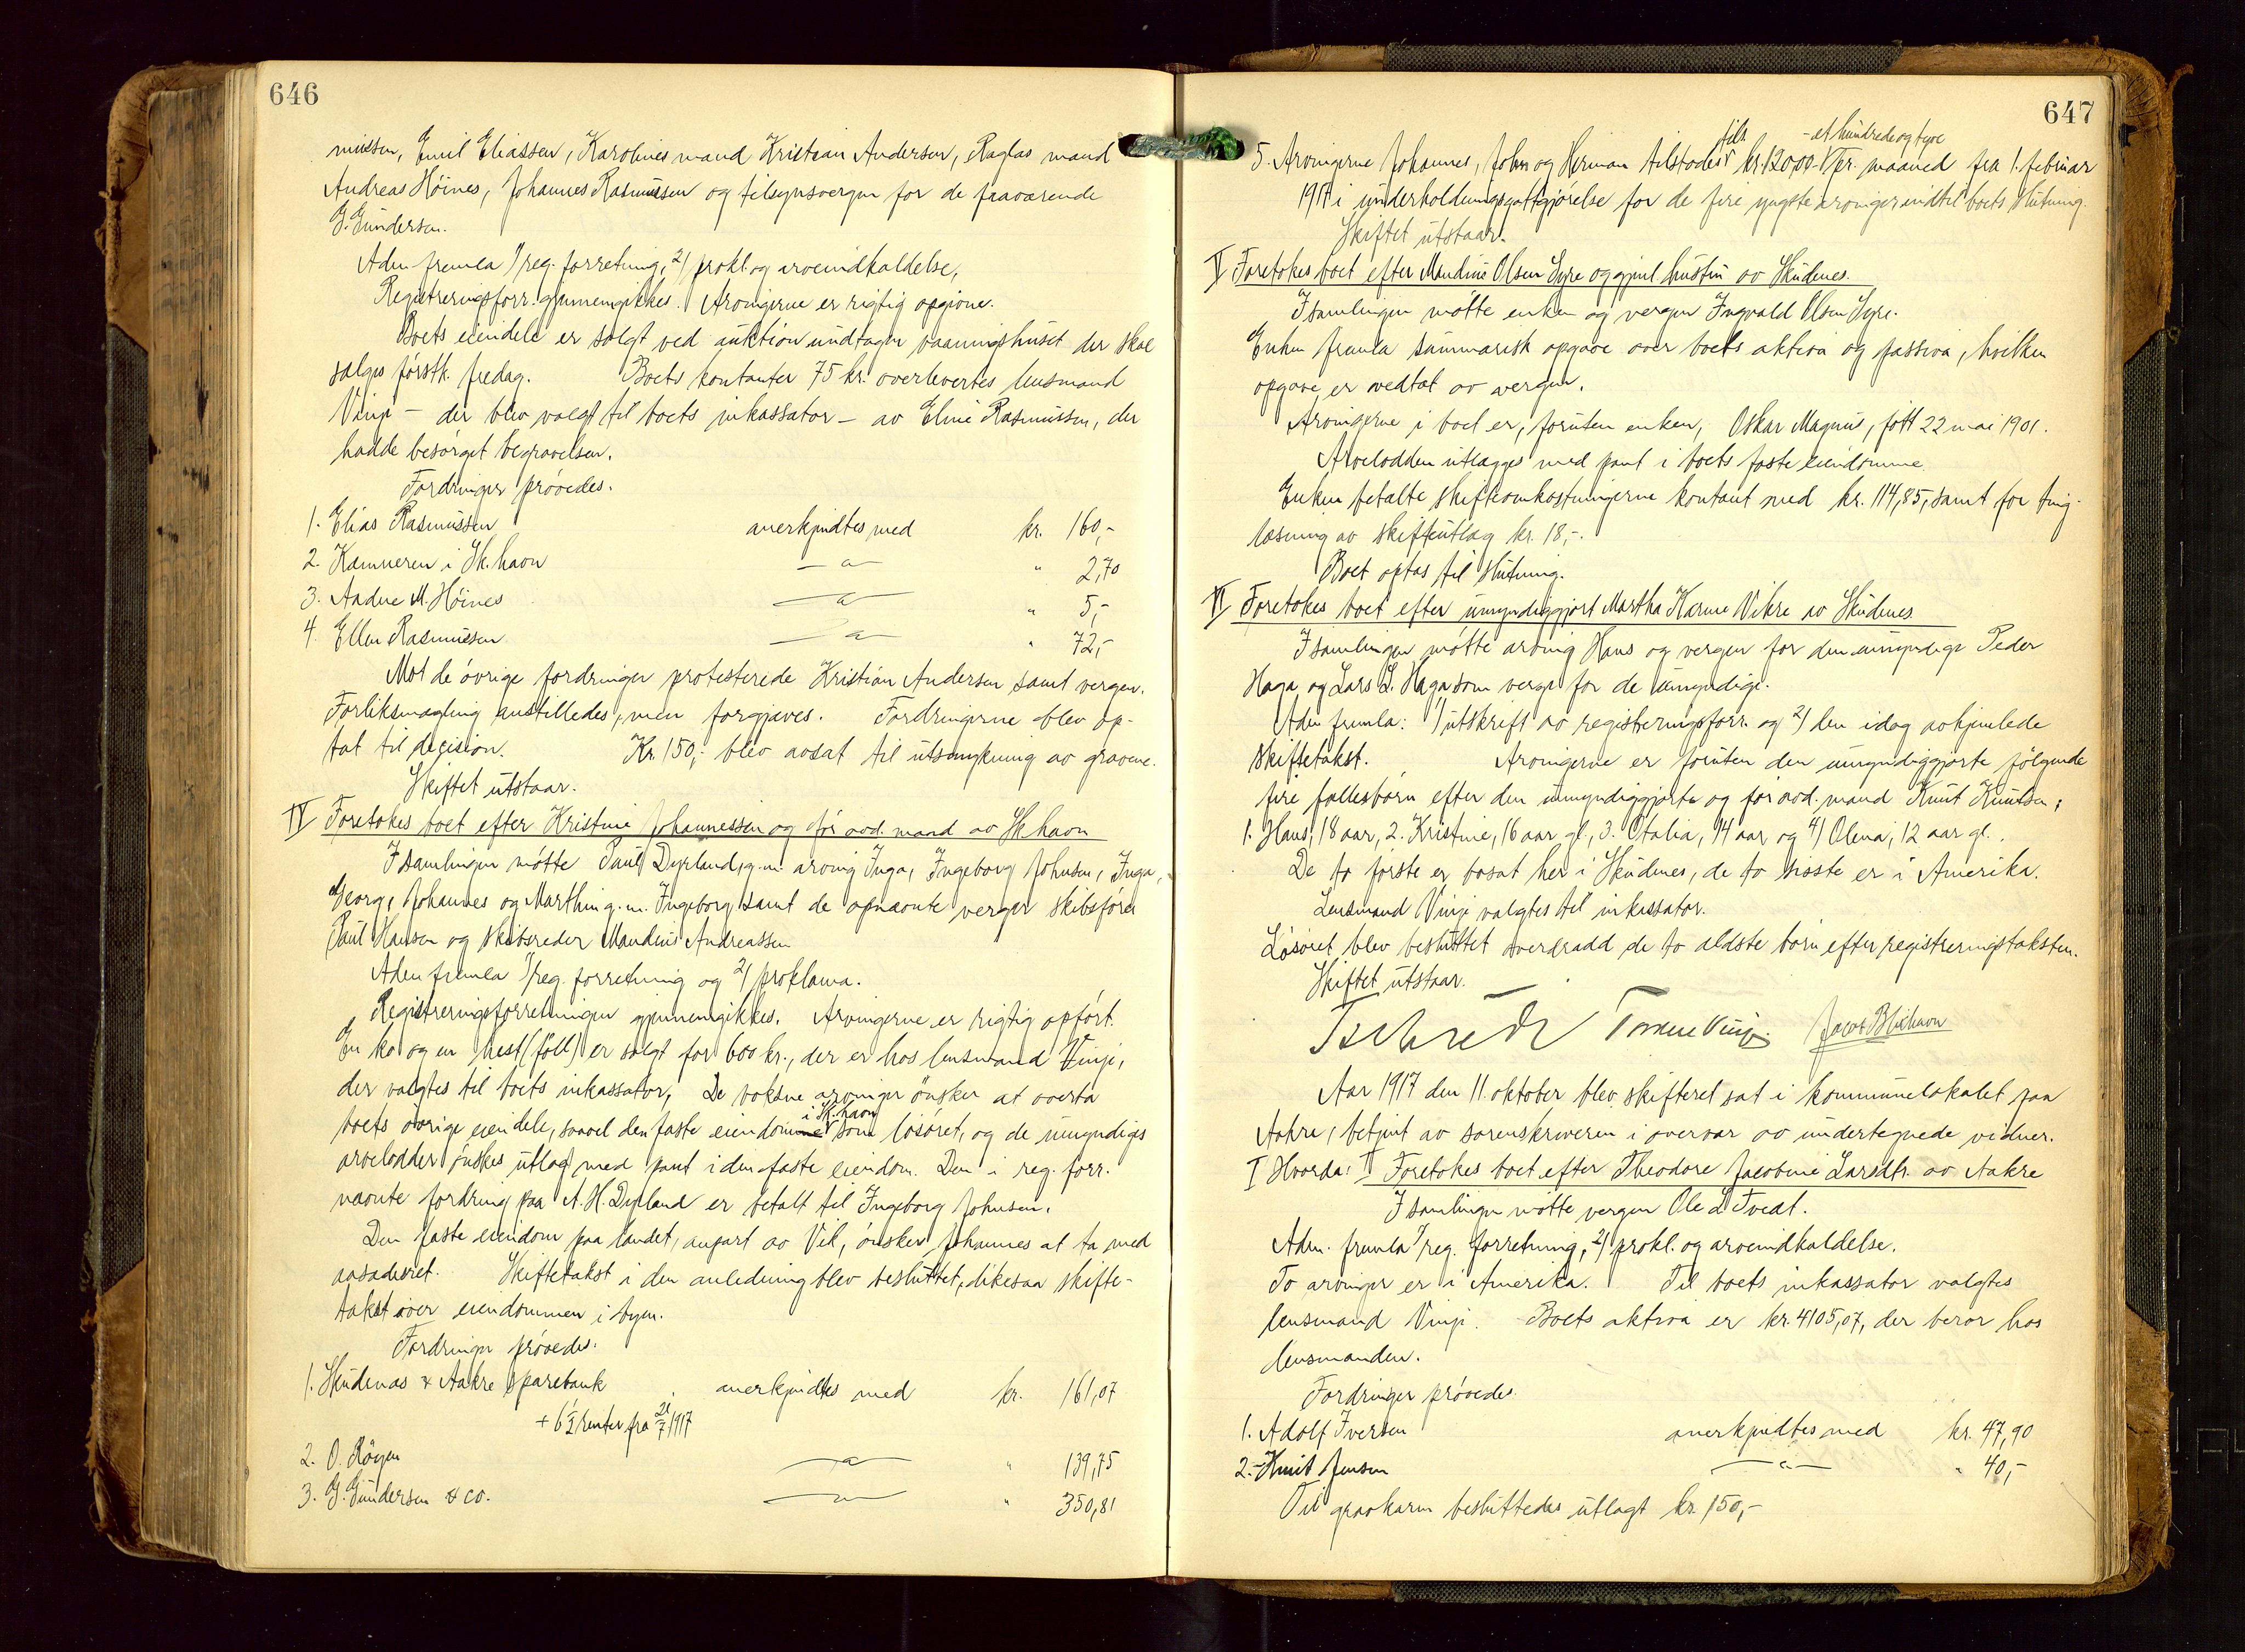 646
mussen, Emil Eliassen, Karolines mand Kristian Andersen, Raglas mand
Andreas Höines, Johannes Rasmussen og tilsynsvergen for de fraaværende
G. Gundersen.
Adm fremla 1/ reg. forretning, 2/ prokl. og arveindkaldelse,
Registreringsforr. gjennemgikkes. Arvingerne er rigtig opgivne.
Boets eiendele er solgt ved auktion undtagen vaaningshuset der skal
sælges förstk. fredag. Boets kontanter 75 kr. overlevertes lensmand
Vinje – der blev valgt til boets inkassator – av Eline Rasmussen, der
hadde besörget begravelsen.
Fordringer prövedes.
1. Elias Rasmussen anerkjendtes med kr. 160,-
2. Kæmneren i Sk.havn — a — " 2,70
3. Aadne M. Höines — a — " 5,-
4. Ellen Rasmussen — a — " 72,-
Mot de övrige fordringer protesterede Kristian Andersen samt vergen.
Forliksmægling anstilledes, men forgjæves. Fordringerne blev op-
tat til decision. Kr. 150,- blev avsat til utsmykning av gravene.
Skiftet utstaar.
IV Foretokes boet efter Kristine Johannessen og för avd. mand av Sk.havn
I samlingen mötte Paul Dyrland, g.m. arving Inga, Ingeborg Johnsen, Inga,
Georg, Johannes og Marthin g.m. Ingeborg samt de opnævnte verger skibsförer
Paul Hansen og skibsreder Mandius Andreassen
Adm fremla 1/ reg. forretning og 2/ proklama.
Registreringsforretningen gjennemgikkes. Arvingerne er rigtig opfört.
En ko og en hest (föll) er solgt for 600 kr., der er hos lensmand Vinje,
der valgtes til boets inkassator. De voksne arvinger önsker at overta
boets övrige eiendele, saavel den faste eiendomme i Sk.havn som lösöret, og de umyndiges
arvelodder önskes utlagt med pant i den faste eiendom. Den i reg. forr.
nævnte fordring paa A. H. Dyrland er betalt til Ingeborg Johnsen.
Den faste eiendom paa landet, anpart av Vik, önsker Johannes at ta med
aasædesret. Skiftetakst i den anledning blev besluttet, likesaa skifte-
takst över eiendommen i byen.
Fordringer prövedes:
1. Skudenæs & Aakre sparebank anerkjendtes med kr. 161,07
+ 6 ½ renter fra 21/7 1917
2. O. Röyen — a — " 139,75
3. G. Gundersen & co. — " — " 350,81
647
5. Arvingerne Johannes, John og Herman tilstodes tils. kr. 120,00 - et hundrede og tyve pr. maaned fra 1. februar
1917 i underholdningsgodtgjörelse for de fire yngste arvinger indtil boets slutning.
Skiftet utstaar.
V Foretokes boet efter Mandius Olsen Syre og gjenl. hustru av Skudenes.
I samlingen mötte enken og vergen Ingvald Olsen Syre.
Enken fremla summarisk opgave over boets aktiva og passiva, hvilken
opgave er vedtat av vergen.
Arvingerne i boet er, foruten enken, Oskar Magnus, född 22 mai 1901.
Arvelodden utlægges med pant i boets faste eiendomme.
Enken betalte skifteomkostningerne kontant med kr. 114,85, samt for ting-
læsning av skifteutlæg kr. 18,-.
Boet optas til slutning.
VI Foretokes boet efter umyndiggjort Martha Karine Vikre av Skudenes
I samlingen mötte arving Hans og vergen for den umyndige Peder
Haga og Lars L. Haga som verge for de umyndige.
Adm fremla: 1/ utskrift av registreringsforr. og 2/ den idag avhjemlede
skiftetakst. Arvingerne er foruten den umyndiggjorte fölgende
fire fællesbörn efter den umyndiggjorte og för avd. mand Knut Knutsen;
1. Hans, 18 aar, 2. Kristine, 16 aar gl., 3. Otalia, 14 aar og 4/ Olena, 12 aar gl..
De to förste er bosat her i Skudenes, de to sisste er i Amerika.
Lensmand Vinje valgtes til inkassator.
Lösöret blev besluttet overdradd de to ældste börn efter registreringstaksten.
Skiftet utstaar.
Tarald Vinje.
Aar 1917 den 11. oktober blev skifteret sat i kommunelokalet paa
Aakre, betjent av sorenskriveren i overvær av undertegnede vidner.
I Hvorda: I Foretokes boet efter Theodore Jacobine Larsdtr. av Aakre
I samlingen mötte vergen Ole L. Tvedt.
Adm. fremla 1/ reg. forretning, 2/ prokl. og arveindkaldelse.
To arvinger er i Amerika. Til boets inkassator valgtes
lensmand Vinje. Boets aktiva er kr. 4105,07, der beror hos
lensmanden.
Fordringer prövedes.
1. Adolf Iversen anerkjendtes med kr. 47,90
2. Knut Jensen — " — " 40,-
Til gravkarm besluttedes utlagt kr. 150,-